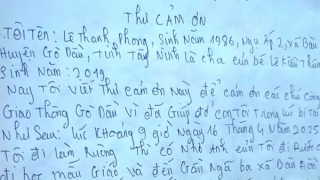 THƯ CẢM ƠN
TÔI TÊN: Lê Thanh Phong, Sinh Năm 1986, Ngụ Ấp 2, xã Bàu
Huyện Gò Dầu, Tỉnh Tây Ninh là cha của bé Lê Kiều Thân
Sinh Năm: 2019
Nay Tôi viết thư cám ơn này để cảm ơn các chú công
Giao Thông Gò Dầu vì đã giúp đỡ con tôi Trong lúc bị tai
Như Sau: lúc khoảng 9 giờ Ngày 16 Tháng 4 Năm 2025
Tôi đi làm Ruộng Thì có Nhờ Anh của Tôi đi Rước c
đi học mẫu Giáo và đến Gần Ngã ba xã Bàu Đồn